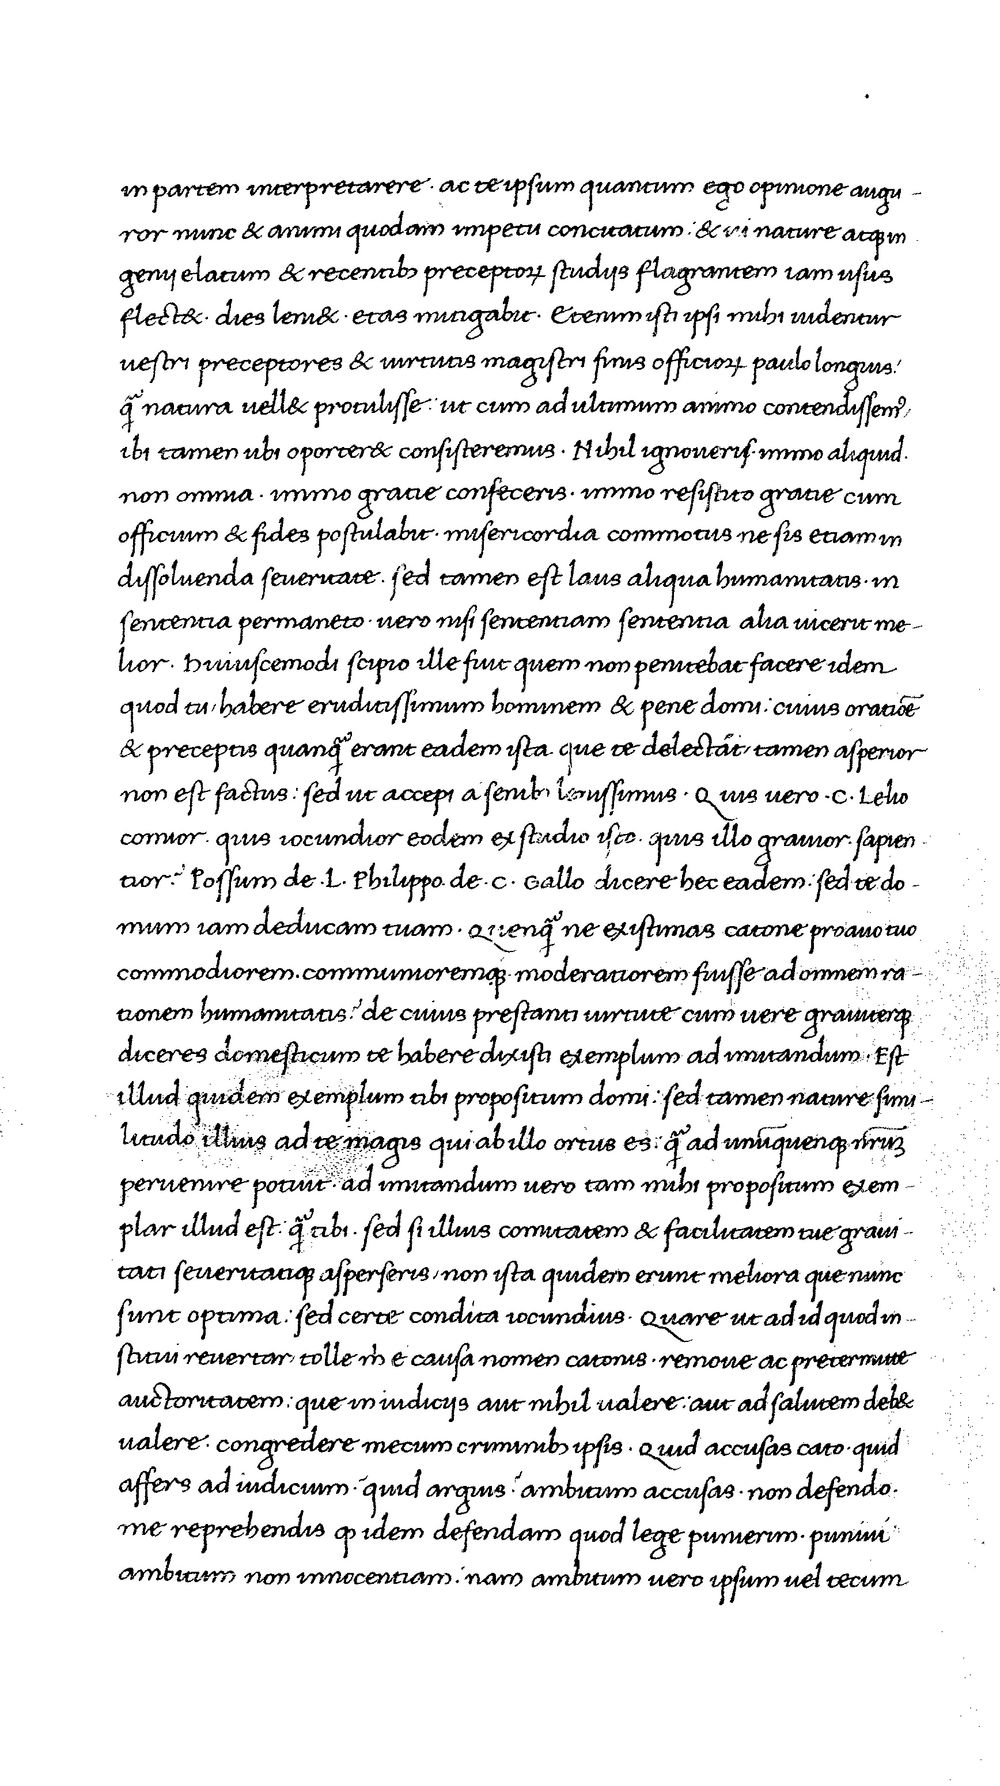 in partem interpretarere · ac te ipsum quantum ego opinione augu-
ror nunc & animi quodam impetu concitatum : & vi nature atq; in
genij elatum & recentib; preceptoꝝ studijs flagrantem iam usus
flect& · dies leni& · etas mitigabit · Etenim isti ipsi mihi uidentur
uestri preceptores & uirtutis magistri finis officioꝝ paulo longius :
q̃ natura uell& protulisse : ut cum ad ultimum animo contendissem⁹,
ibi tamen ubi oporter& consisteremus · Nihil ignoueris · immo aliquid ·
non omnia · immo gratie confeceris · immo resistito gratie cum
officium & fides postulabit · misericordia commotus ne sis etiam in
dissoluenda seueritate · sed tamen est laus aliqua humanitatis · in
sententia permaneto · uero nisi sententiam sententia alia uicerit me-
lior · huiuscemodi scipio ille fuit quem non penitebat facere idem
quod tu / habere eruditissimum hominem & pene domi : cuius oratiōe
& preceptis quanq̃ erant eadem ista que te delectāt / tamen asperior
non est factus : sed ut accepi a senib; lenissimus · Quis uero · C · Lelio
comior · quis iocundior eodem ex studio isto · quis illo grauior · sapien
tior ? Possum de · L · Philippo · de · C · Gallo dicere hec eadem : sed te do-
mum iam deducam tuam · Quenq̃ ne existimas catone proauo tuo
commodiorem · communioremq; moderatiorem fuisse ad omnem ra-
tionem humanitatis ? de cuius prestanti uirtute cum uere grauiterq;
diceres domesticum te habere dixisti exemplum ad imitandum · Est
illud quidem exemplum tibi propositum domi : sed tamen nature simi-
litudo illius ad te magis qui ab illo ortus es : q̃ ad unūquenq; nr̄uȝ
peruenire potuit · ad imitandum uero tam mihi propositum exem-
plar illud est : q̃ tibi · sed si illius comitatem & facilitatem tue graui-
tati seueritatiq; asperseris / non ista quidem erunt meliora que nunc
sunt optima : sed certe condita iocundius · Quare ut ad id quod in-
stitui reuertar / tolle m̄ e causa nomen catonis · remoue ac pretermitte
auctoritatem : que in iudicijs aut nihil ualere : aut ad salutem deb&
ualere · congredere mecum criminib; ipsis · Quid accusas cato · quid
affers ad iudicium · quid arguis ? ambitum accusas · non defendo ·
me reprehendis ꝙ idem defendam quod lege punierim · puniui
ambitum non innocentiam : nam ambitum uero ipsum uel tecum